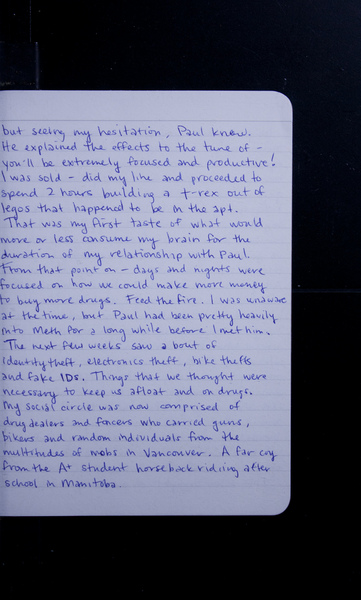 but seeing my hesitation, Paul knew.
He explained the effects to the tune of -
you'll be extremely focused and productive!
I was sold - did my line and proceeded to
spend 2 hours building a t-rex out of
legos that happened to be in the apt.
That was my first taste of what would
more or less consume my brain for the
duration of my relationship with Paul.
From that point on - days and nights were
focused on how we could make more money
to buy more drugs. Feed the fire. I was unaware
at the time, but Paul had been pretty heavily
into Meth for a long while before I met him.
The next few weeks saw a bout of
identity theft, electronics theft, bike thefts
and fake IDs. Things that we thought were
necessary to keep us afloat and on drugs.
My social circle was now comprised of
drug dealers and fencers who carried guns,
bikers and random individuals from the
multitudes of mobs in Vancouver. A far cry
from the A+ student horseback riding after
school in Manitoba.